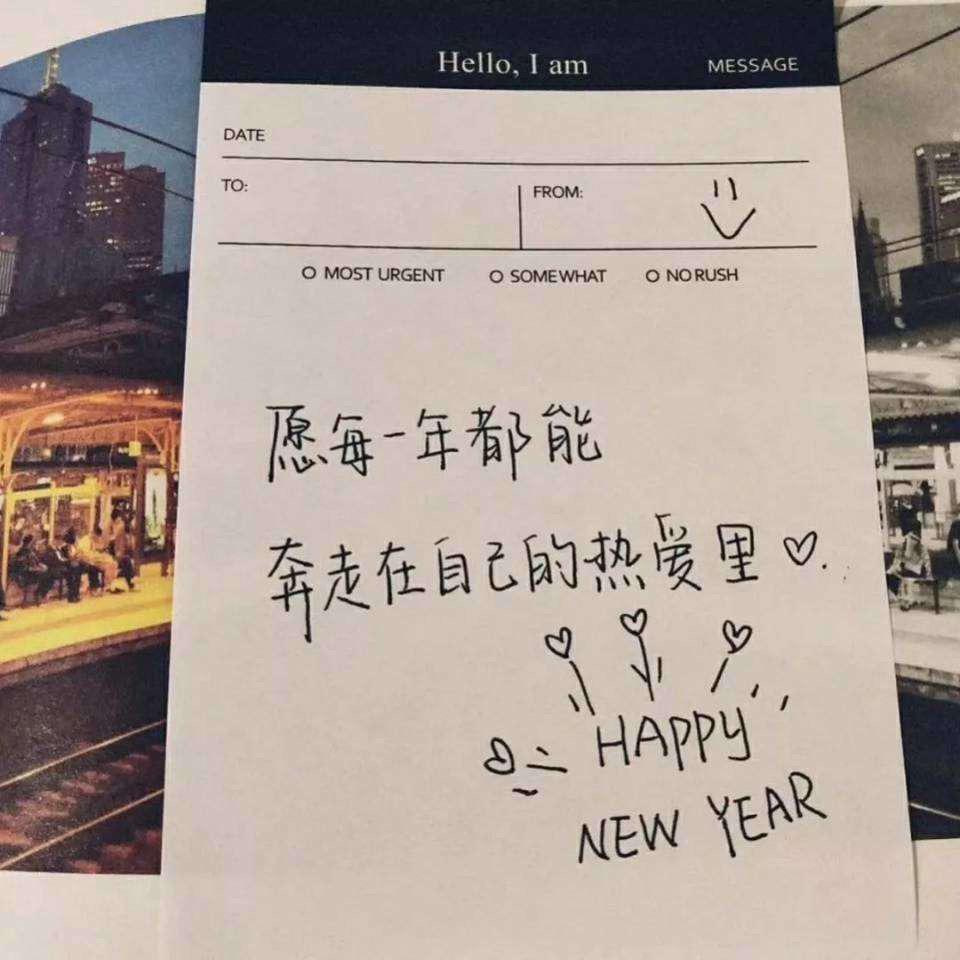 Hello, I am MESSAGE
DATE
TO: FROM:
MOST URGENT SOMEWHAT NO RUSH
愿每一年都能
奔走在自己的热爱里
HAPPY
NEW YEAR